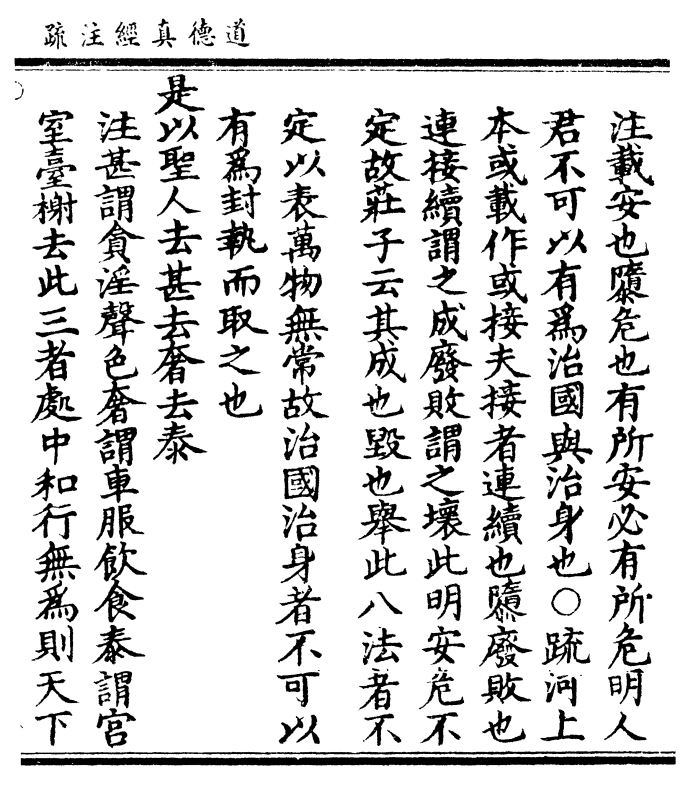 道德真經注疏
注載安也隳危也有所安必有所危明人
君不可以有為治國與治身也○疏河上
本或載作或接夫接者連續也隳廢敗也
連接續謂之成廢敗謂之壞此明安危不
定故莊子云其成也毀也舉此八法者不
定以表萬物無常故治國治身者不可以
有為封執而取之也
是以聖人去甚去奢去泰
注甚謂貪淫聲色奢謂車服飲食泰謂宮
室臺榭去此三者處中和行無為則天下